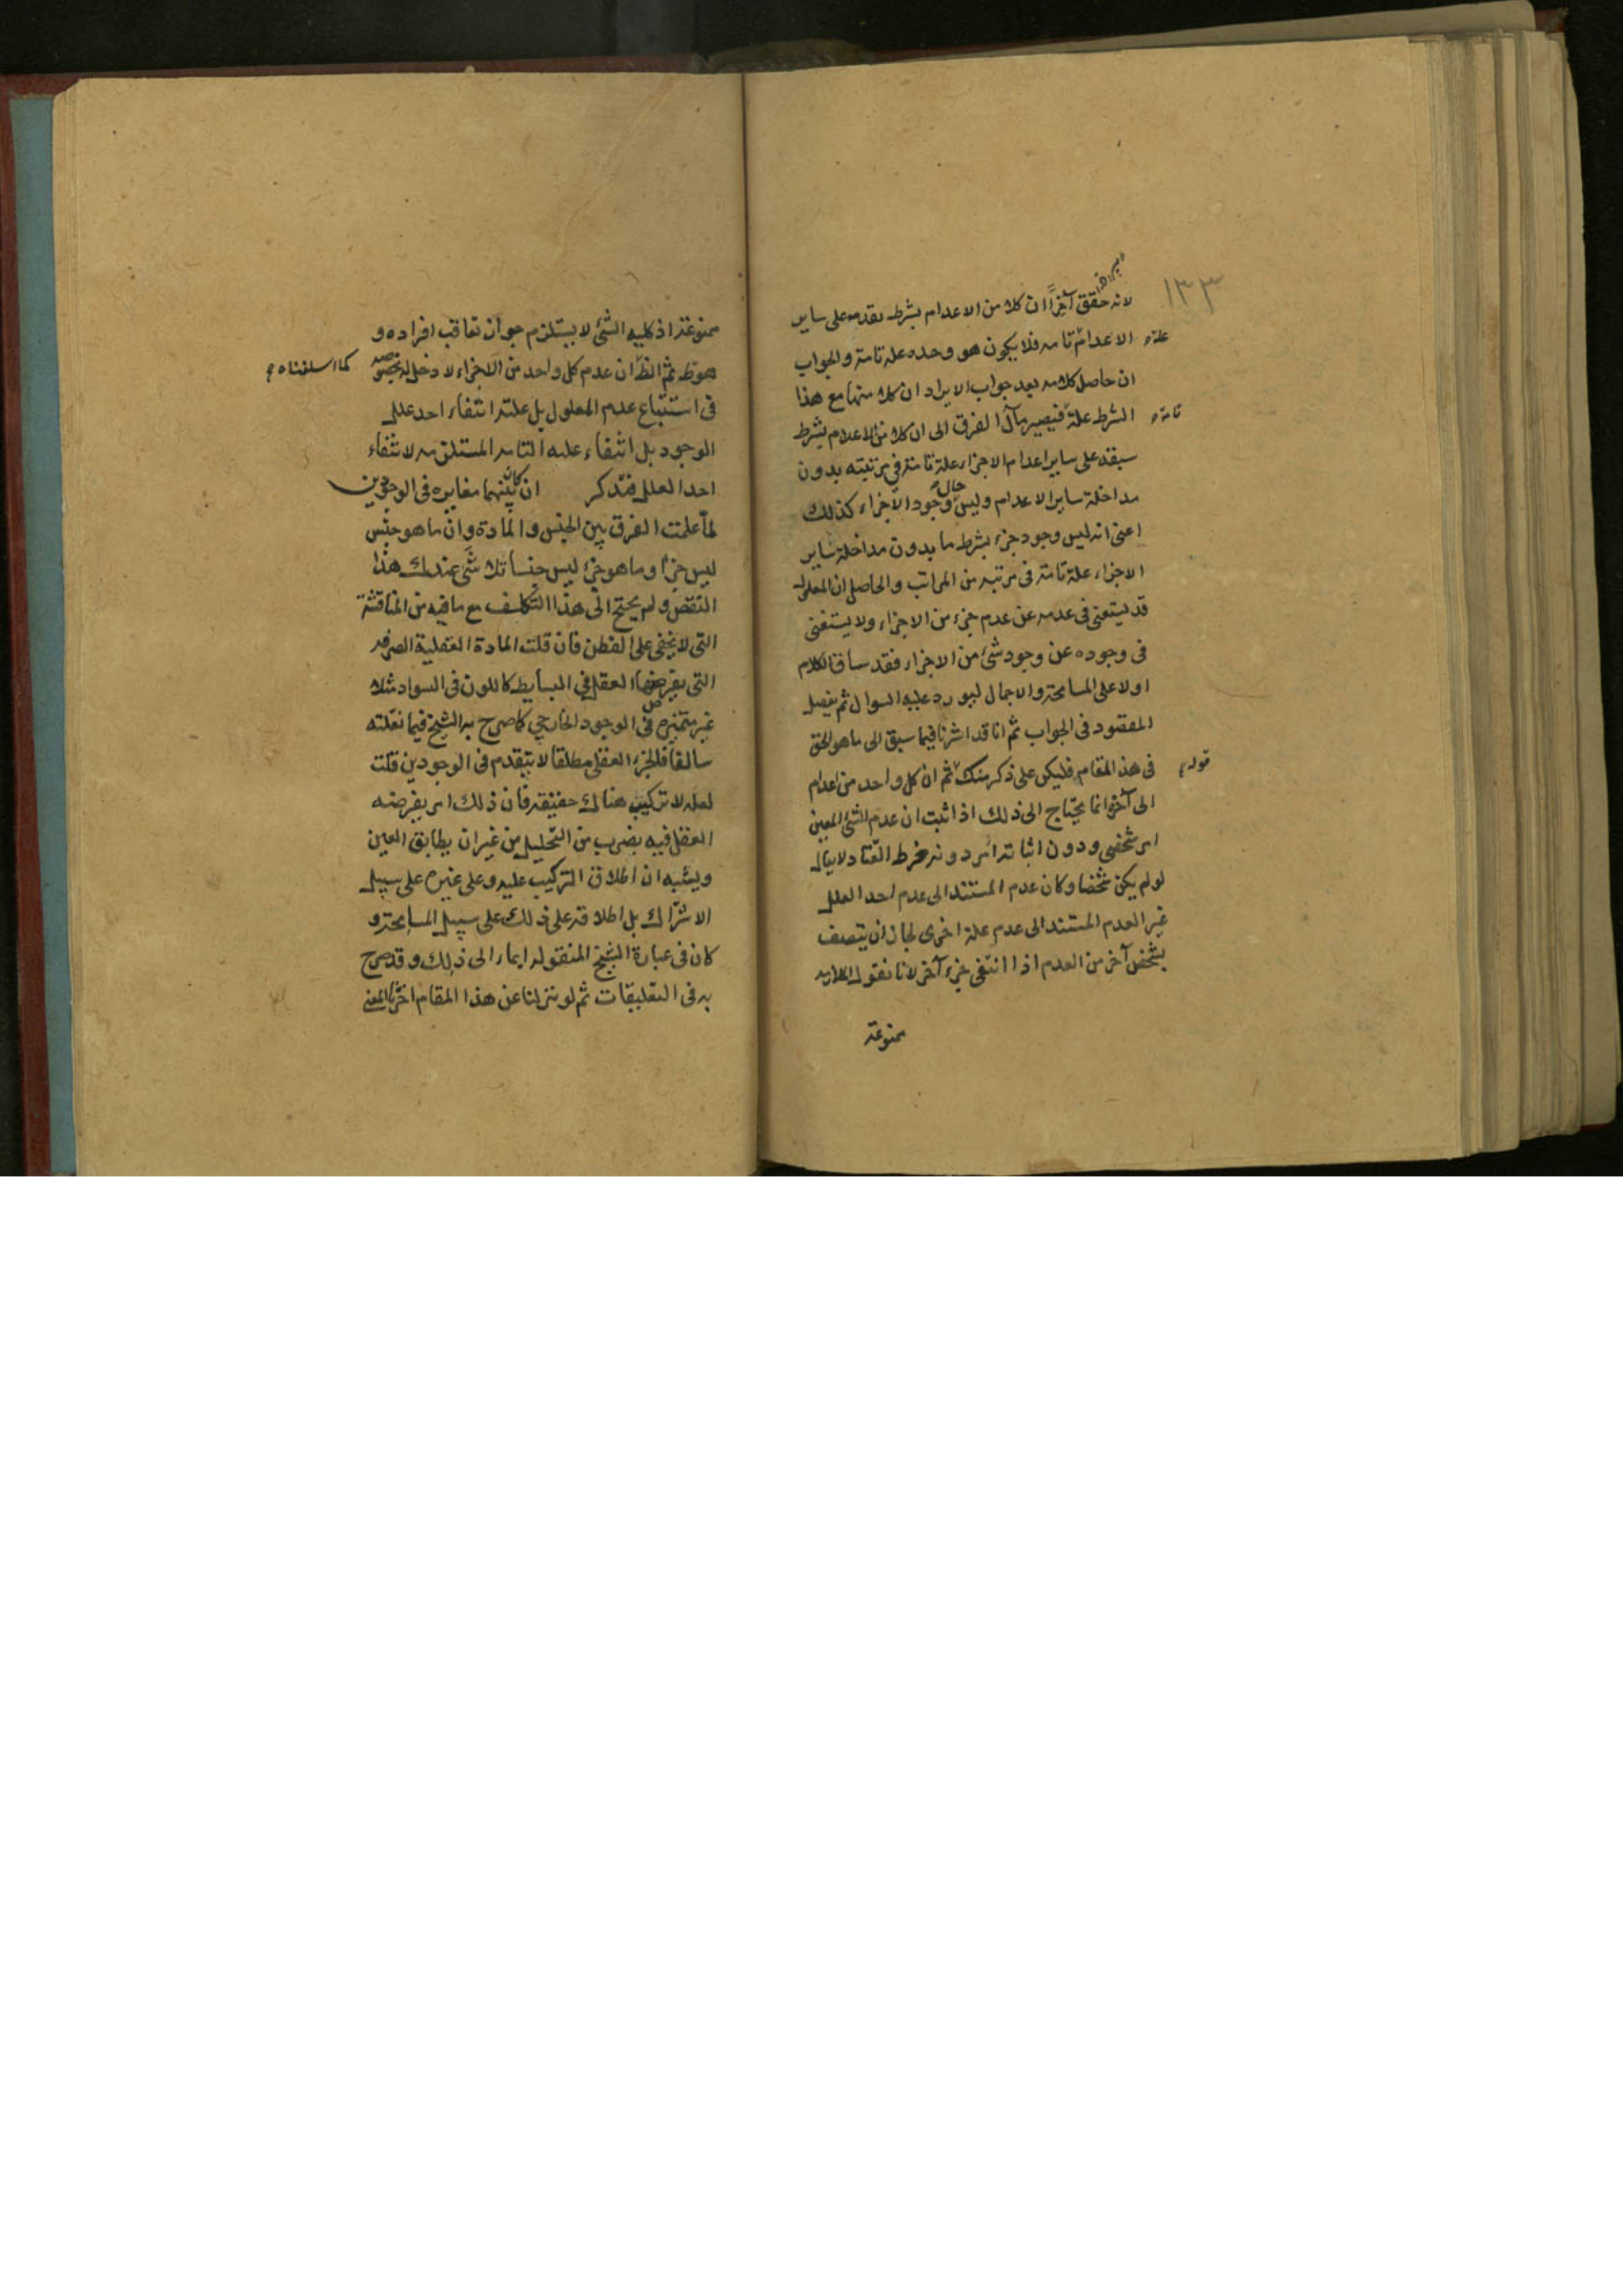 ١٣٣
لانه حقق آخرا ان كلا من الاعدام بشرط تقدمه على ساير
علة
الاعدام تامه فلا يكون هو وحده علة تامة والجواب
ان حاصل كلامه بعد جواب الايراد ان كلا منها مع هذا
تامة
الشرط علة فيصير مآل الفرق الى ان كلا من الاعدام بشرط
سبقه على ساير اعدام الاجزاء علة تامة في مرتبته بدون
مداخلة ساير الاعدام وليس حال وجود الاجزاء كذلك
اعنى انه ليس وجود جزء بشرط ما بدون مداخلة ساير
الاجزاء علة تامة فى مرتبه من المراتب والحاصل ان المعلول
قد يستغنى فى عدمه عن عدم جزء من الاجزاء ولا يستغنى
فى وجوده عن وجود شئ من الاجزاء فقد ساق الكلام
اولا على المسامحة والاجمال ليورد عليه السوال ثم يفصل
المقصود فى الجواب ثم انا قد اشرنا فيما سبق الى ما هو الحق
قوله
فى هذا المقام فليكن على ذكر منك ثم ان كل واحد من اعدام
الى آخره انما يحتاج الى ذلك اذا ثبت ان عدم الشئ المعين
امر شخصى ودون اثباته دونه خرط القتاد لا يقال
لو لم يكن شخصا وكان عدم المستند الى عدم احد العلل
غير العدم المستند الى عدم علة اخرى لجاز ان يتصف
بشخص آخر من العدم اذا انتفى جزء آخر لانا نقول الملازمه
ممنوعة
ممنوعة اذ كليه الشئ لا يستلزم جواز تعاقب افراده و
هو ظ ثم الظ ان عدم كل واحد من الاجزاء لا دخل له بخصوصه
كما اسلفناه
فى استتباع عدم المعلول بل علته انتفاء احد علل
الوجود بل انتفاء علته التامه المستلزمه لانتفاء
احد العلل فتذكر ان كان بينهما مغايره فى الوجودين
لما علمت الفرق بين الجنس والمادة وان ما هو جنس
ليس جزءا وما هو جزء ليس جنسا تلاشى عندك هذا
النقض ولم يحتج الى هذا التكلف مع ما فيه من المناقشة
التى لا يخفى على الفطن فان قلت المادة العقلية الصرفه
التى يفرضها العقل فى البسايط كاللون فى السواد مثلا
غير متميزه فى الوجود الخارجى كما صرح به الشيخ فيما نقلته
سالفا فالجزء العقلى مطلقا لا يتقدم فى الوجودين قلت
لعله لا تركيب هناك حقيقة فان ذلك امر يفرضه
العقل فيه بضرب من التحليل من غير ان يطابق العين
ويشبه ان اطلاق التركيب عليه وعلى غيره على سبيل
الاشتراك بل اطلاقه على ذلك على سبيل المسامحة و
كان فى عبارة الشيخ المنقوله ايماء الى ذلك وقد صرح
به فى التعليقات ثم لو تنزلنا عن هذا المقام اخترنا